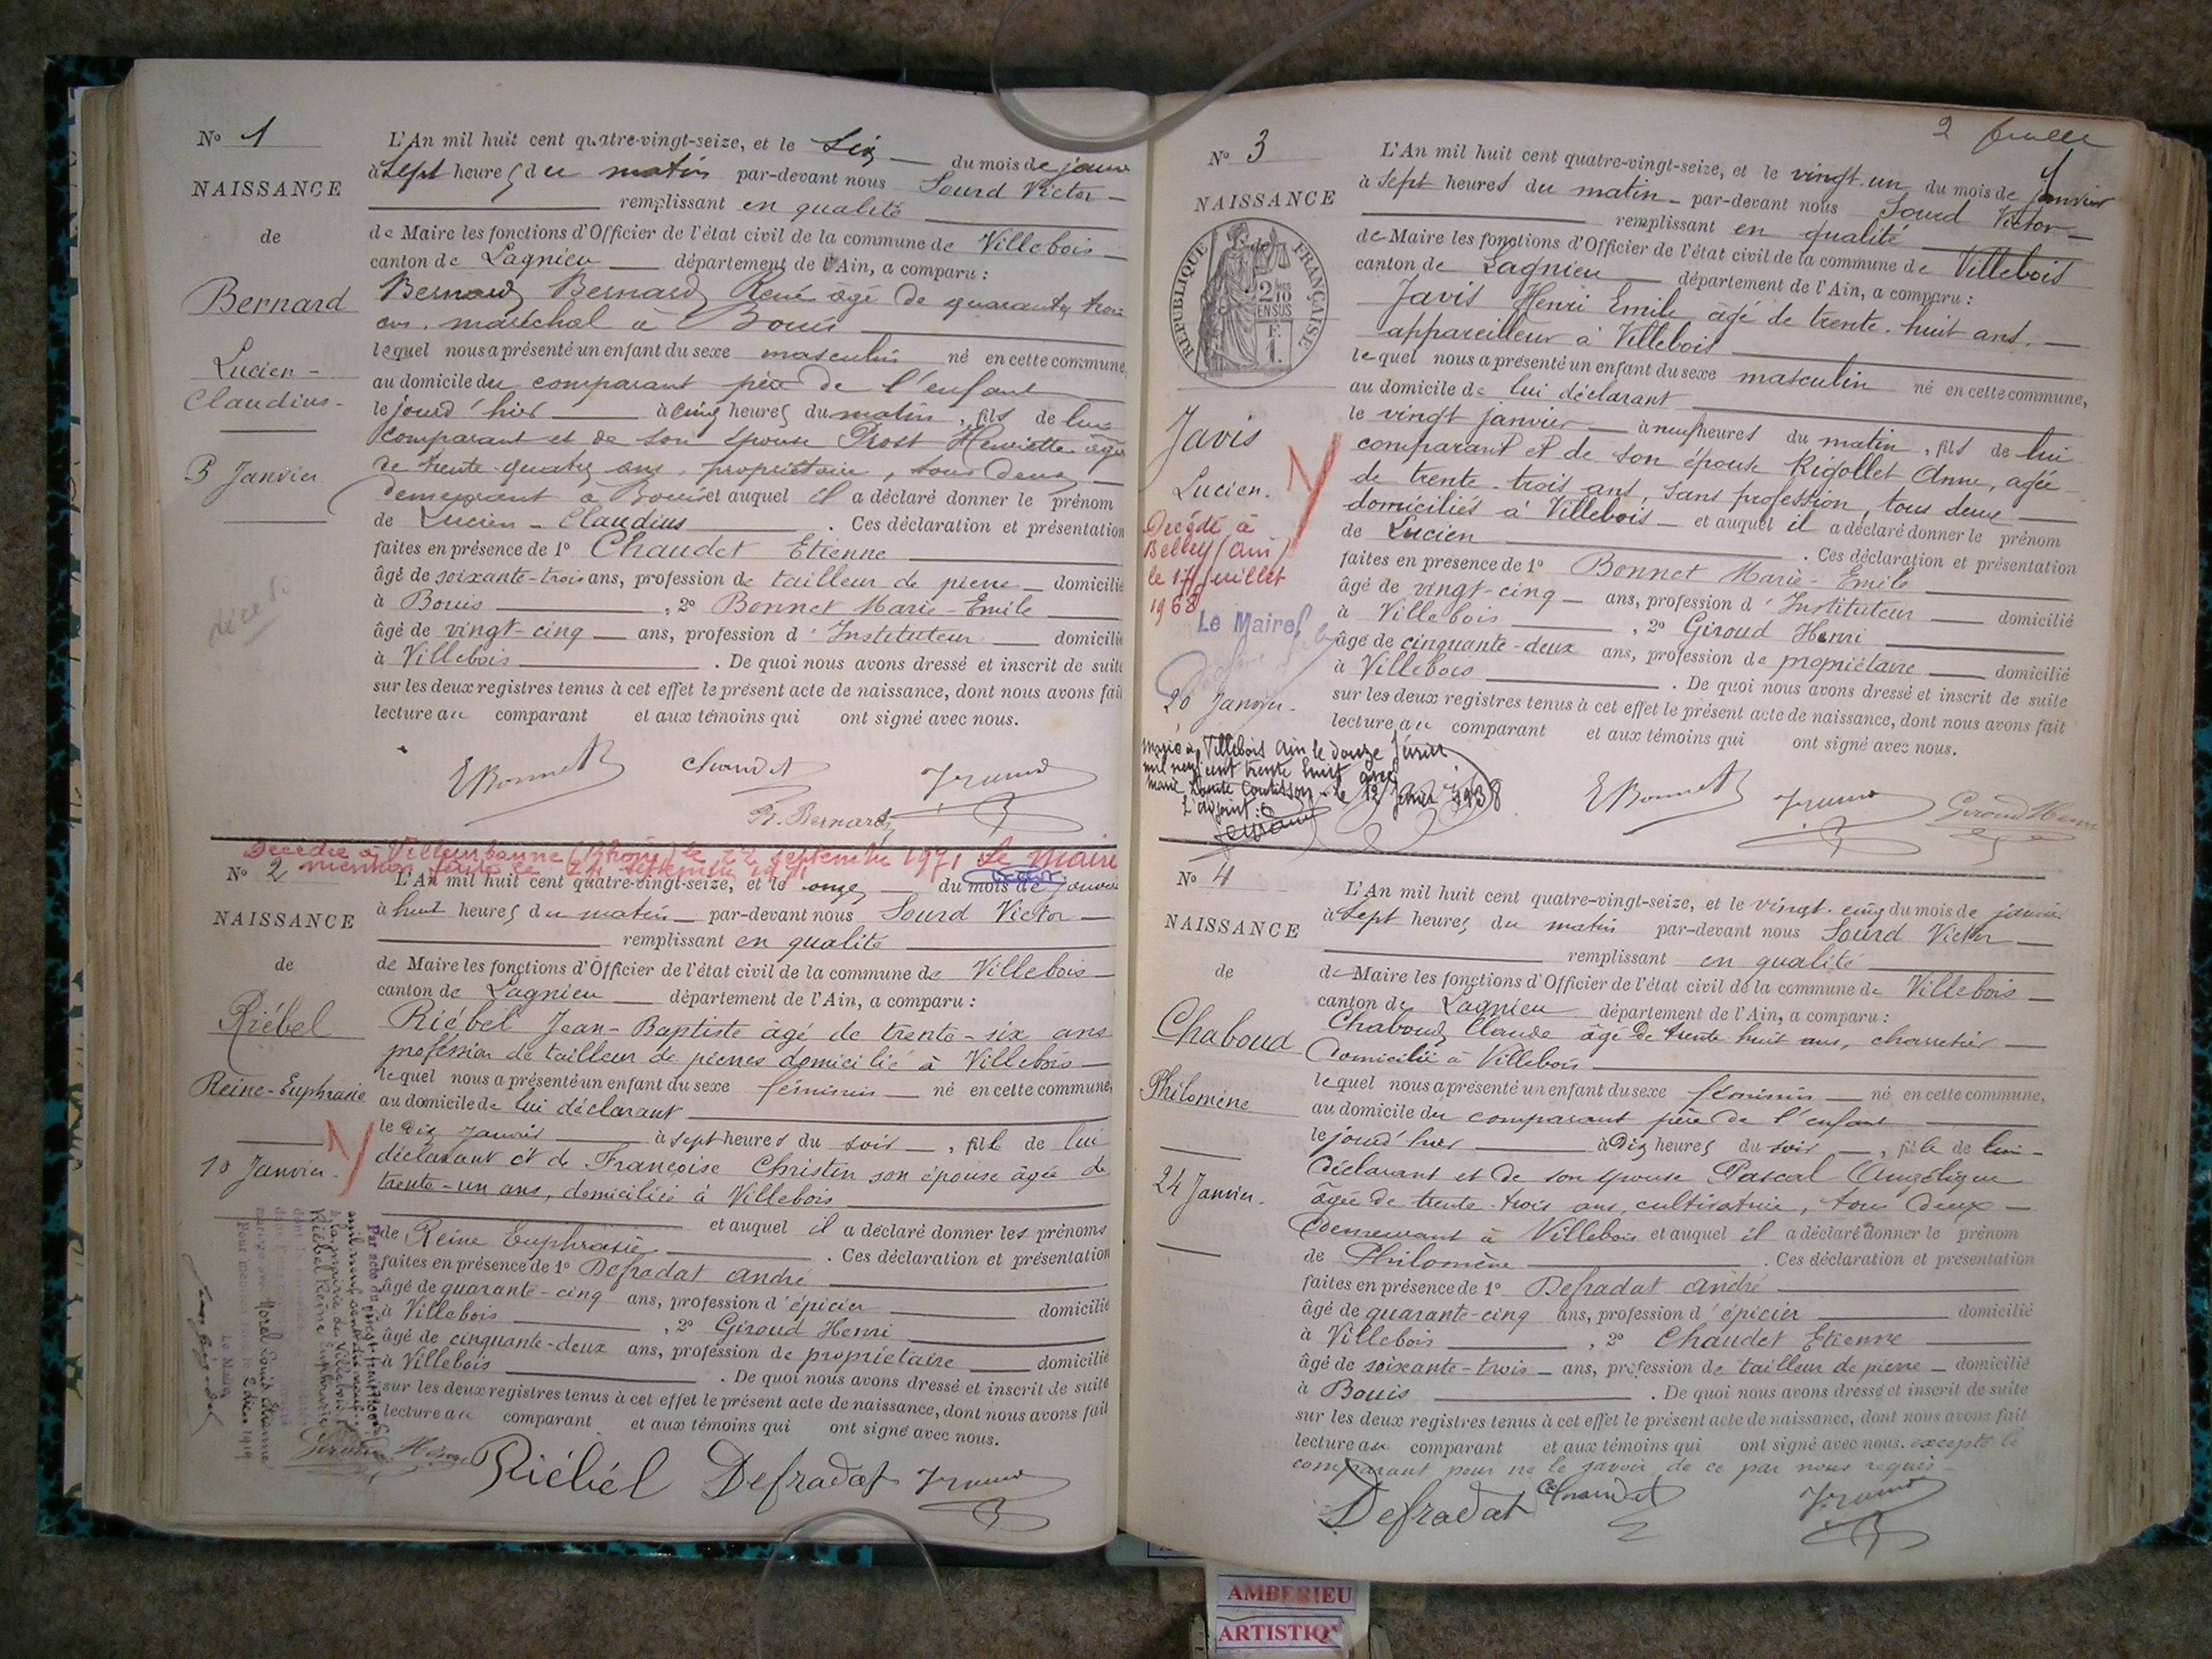 No 1
NAISSANCE
de
Bernard
Lucien -
Claudius -
5 Janvier
L'An mil huit cent quatre-vingt-seize, et le six du mois de janv
à Sept heures du matin par-devant nous Sourd Victor
remplissant en qualité
de Maire les fonctions d'Officier de l'état civil de la commune de Villebois
canton de Lagnieu département de l'Ain, a comparu :
Bernard Bernard René âgé de quarante trois
ans. maréchal à Bouis
lequel nous a présenté un enfant du sexe masculin né en cette commune,
au domicile du comparant père de l'enfant
le jourd'hier à cinq heures du matin, fils de lui
comparant et de son épouse Prost Henriette âgée
de trente quatre ans, propriétaire, tous deux
demeurant à Bouis et auquel il a déclaré donner le prénom
de Lucien - Claudius . Ces déclaration et présentation
faites en présence de 1° Chaudet Etienne
âgé de soixante-trois ans, profession de tailleur de pierre domicilié
à Bouis , 2° Bonnet Marie-Emile
âgé de vingt-cinq ans, profession d'Instituteur domicilié
à Villebois . De quoi nous avons dressé et inscrit de suite
sur les deux registres tenus à cet effet le présent acte de naissance, dont nous avons fait
lecture au comparant et aux témoins qui ont signé avec nous.
décédé
EBonnet Chaudet
R. Bernard
Décédée à Villeurbanne (Rhône) le 22 septembre 1971 Le Maire
mention faite le 24 septembre 1971
No 2
NAISSANCE
de
Riébel
Reine-Euphrasie
10 Janvier.
L'An mil huit cent quatre-vingt-seize, et le onze du mois de janvier
à huit heures du matin par-devant nous Sourd Victor
remplissant en qualité
de Maire les fonctions d'Officier de l'état civil de la commune de Villebois
canton de Lagnieu département de l'Ain, a comparu :
Riébel Jean-Baptiste âgé de trente-six ans
profession de tailleur de pierres domicilié à Villebois
lequel nous a présenté un enfant du sexe féminin né en cette commune,
au domicile de lui déclarant
le dix janvier à sept heures du soir, fille de lui
déclarant et de Françoise Christin son épouse âgée de
trente-un ans, domiciliée à Villebois
et auquel il a déclaré donner les prénoms
de Reine Euphrasie . Ces déclaration et présentation
faites en présence de 1° Defradat André
âgé de quarante-cinq ans, profession d'épicier domicilié
à Villebois , 2° Giroud Henri
âgé de cinquante-deux ans, profession de propriétaire domicilié
à Villebois . De quoi nous avons dressé et inscrit de suite
sur les deux registres tenus à cet effet le présent acte de naissance, dont nous avons fait
lecture au comparant et aux témoins qui ont signé avec nous.
Riébel Reine Euphrasie
Morel Louis Etienne
Le Maire
Riébel Defradat
2
No 3
NAISSANCE
RÉPUBLIQUE FRANÇAISE
2/10
EN SUS
Javis
Lucien.
Décédé à
Belley (Ain)
le 17 Juillet
1968
Le Maire
20 Janvier.
L'An mil huit cent quatre-vingt-seize, et le vingt-un du mois de Janvier
à Sept heures du matin par-devant nous Sourd Victor
remplissant en qualité
de Maire les fonctions d'Officier de l'état civil de la commune de Villebois
canton de Lagnieu département de l'Ain, a comparu :
Javis Henri Emile âgé de trente-huit ans.
appareilleur à Villebois
lequel nous a présenté un enfant du sexe masculin né en cette commune,
au domicile de lui déclarant
le vingt janvier à neuf heures du matin, fils de lui
comparant et de son épouse Rigollet Anne, agée
de trente-trois ans, sans profession, tous deux
domiciliés à Villebois et auquel il a déclaré donner le prénom
de Lucien . Ces déclaration et présentation
faites en présence de 1° Bonnet Marie-Emile
âgé de vingt-cinq ans, profession d'Instituteur domicilié
à Villebois , 2° Giroud Henri
âgé de cinquante-deux ans, profession de propriétaire domicilié
à Villebois . De quoi nous avons dressé et inscrit de suite
sur les deux registres tenus à cet effet le présent acte de naissance, dont nous avons fait
lecture au comparant et aux témoins qui ont signé avec nous.
Marié à Villebois Ain le douze février
mil neuf cent trente huit avec
Marie le 12 février 1938
L'adjoint.
EBonnet Giroud Henri
No 4
NAISSANCE
de
Chaboud
Philomène
24 Janvier.
L'An mil huit cent quatre-vingt-seize, et le vingt-cinq du mois de janvier
à Sept heures du matin par-devant nous Sourd Victor
remplissant en qualité
de Maire les fonctions d'Officier de l'état civil de la commune de Villebois
canton de Lagnieu département de l'Ain, a comparu :
Chaboud Claude âgé de trente huit ans, charretier
domicilié à Villebois
lequel nous a présenté un enfant du sexe féminin né en cette commune,
au domicile du comparant père de l'enfant
le jourd'hier à Dix heures du soir, fille de lui
déclarant et de son épouse Pascal Angélique
âgée de trente-trois ans, cultivatrice, tous deux
demeurant à Villebois et auquel il a déclaré donner le prénom
de Philomène . Ces déclaration et présentation
faites en présence de 1° Defradat André
âgé de quarante-cinq ans, profession d'épicier domicilié
à Villebois , 2° Chaudet Etienne
âgé de soixante-trois ans, profession de tailleur de pierre domicilié
à Bouis . De quoi nous avons dressé et inscrit de suite
sur les deux registres tenus à cet effet le présent acte de naissance, dont nous avons fait
lecture au comparant et aux témoins qui ont signé avec nous. excepté le
comparant pour ne le savoir de ce par nous requis
Defradat Chaudet
AMBERIEU
ARTISTIQ